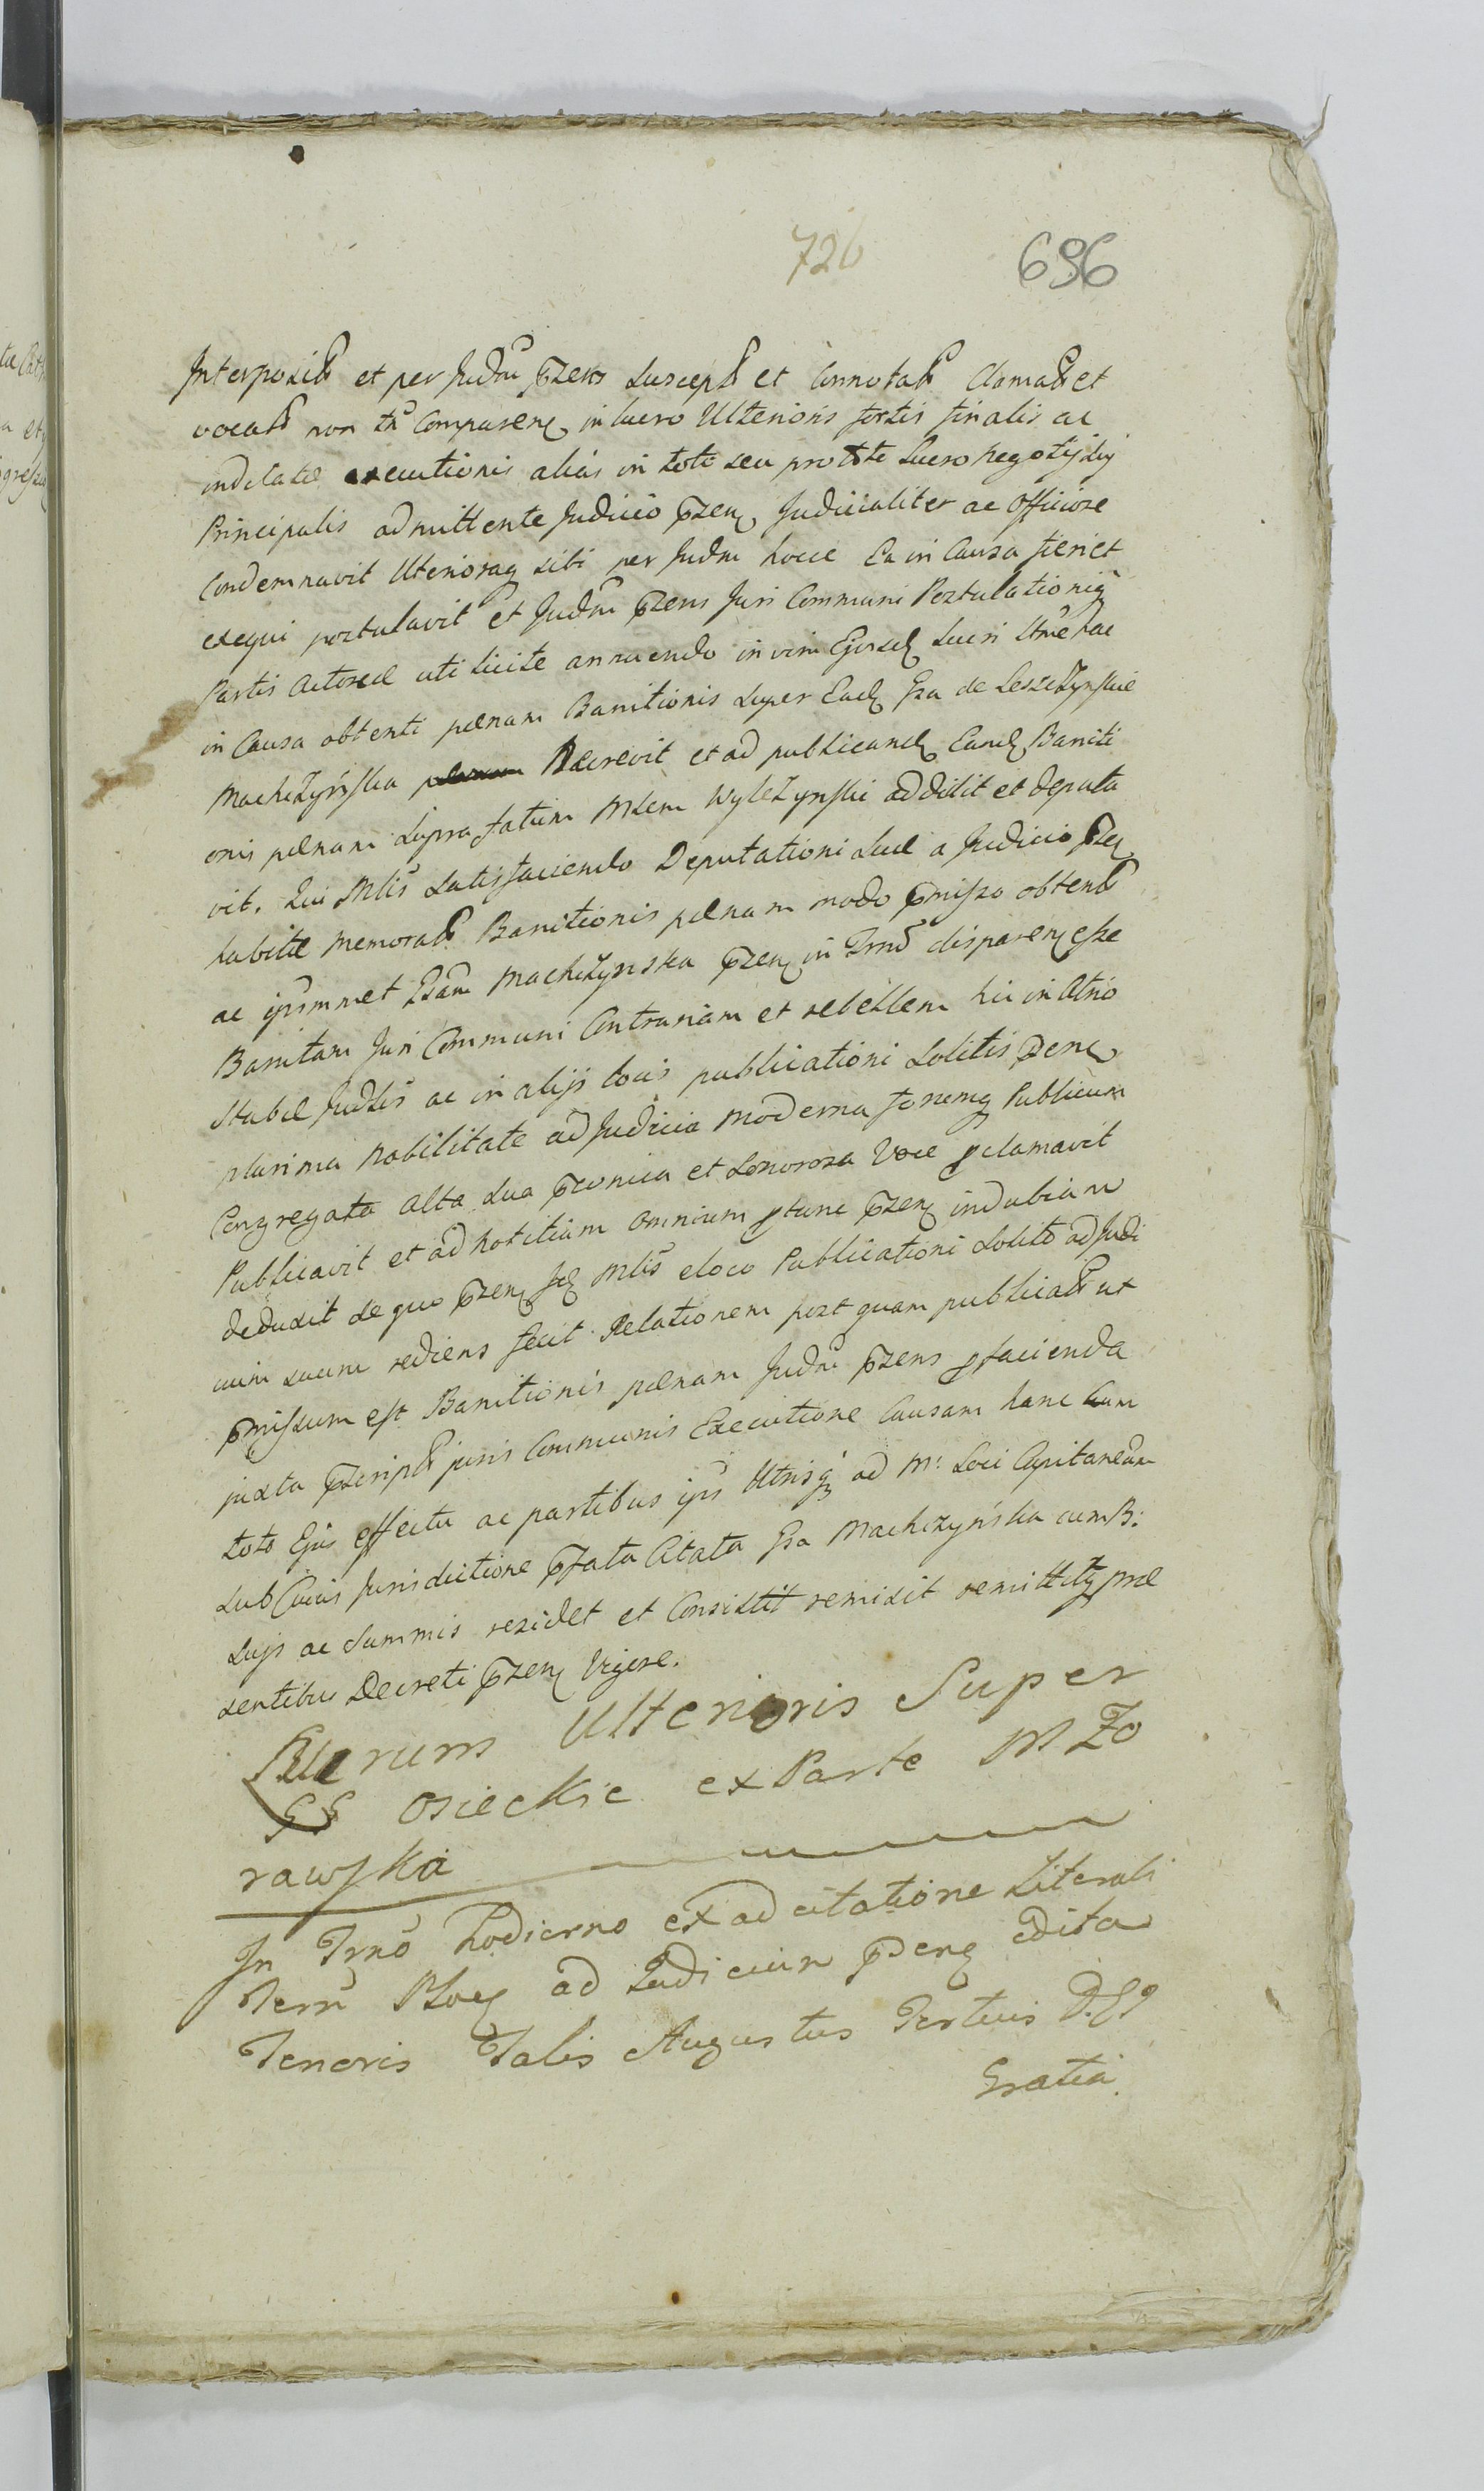 726 696
Interposit et per Judm pzens suscept et Connotat Clamat et
vocat non tn Comparen in lucro Ulterioris fortis finalis ac
indilatae executionis alias in toto seu pro toto lucro negotij sui
Principalis admittente Judicio pzen Judicialiter ac Officiose
Condemnavit Ulterioraq sibi per Judm hocce Ea in Causa fieri et
exequi postulavit et Judm pzens Juri Communi Postulationiq
Partis Actoreae uti licite annuendo in vim Ejusd lucri Ulme hac
in Causa obtenti paenam Banitionis super Ead Gsa de Leszczynskie
Machczyńska Decrevit et ad publicand Eand Baniti
onis paenam supra fatum Mlem Wylezynski addidit et deputa
vit. Qui Mlis satisfaciendo Deputationi suae a Judicio pzen
habitae memorat Banitionis paenam modo pmisso obtent
ac ipsmmet Gsam Machczynska pzen in Trno disparen esse
Banitam Juri Communi Contrariam et rebellem hic in Atrio
Stubae Judlis ac in alijs locis publicationi solitis pene
plurima Nobilitate ad Judicia moderna forumq Publicum
Congregata alta sua pconica et sonorosa Voce pclamavit
Publicavit et ad notitiam omnium ptunc pzen indubiam
deduxit de quo pzen Jd Mlis eloco Publicationi solito ad Judi
cium suum rediens fecit Relationem post quam publicat ut
pmissum est Banitionis paenam Judm pzens pfacienda
juxta pzscript juris Communis Executione Causam hanc Cum
toto Ejus effectu ac partibus ips Utrisq ad M. Loci Capitaneum
sub Cuius Jurisdictione pfata Citata Gsa Machczyńska cum B:
suis ac summis residet et Consistit remisit remittitq prae
sentibus Decreti pzen Vigore.
Lucrum Ulterioris Super
GG Osieckie ex Parte M Zo
rawska
In Trno hodierno ex ad citatione Literali
Terri Ploc ad Judicium pzens edita
Tenoris Talis Augustus Tertius D. G.
Gratia